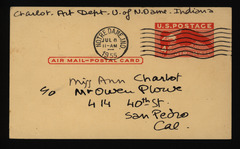 Charlot. Art Dept. U. of N. Dame. Indiana
NOTRE DAME, IND.
JUL 6
11-AM
1955
U.S. POSTAGE
AIR MAIL-POSTAL CARD
Miss Ann Charlot
c/o Mr Owen Plowe
414 40th St.
San Pedro
Cal.